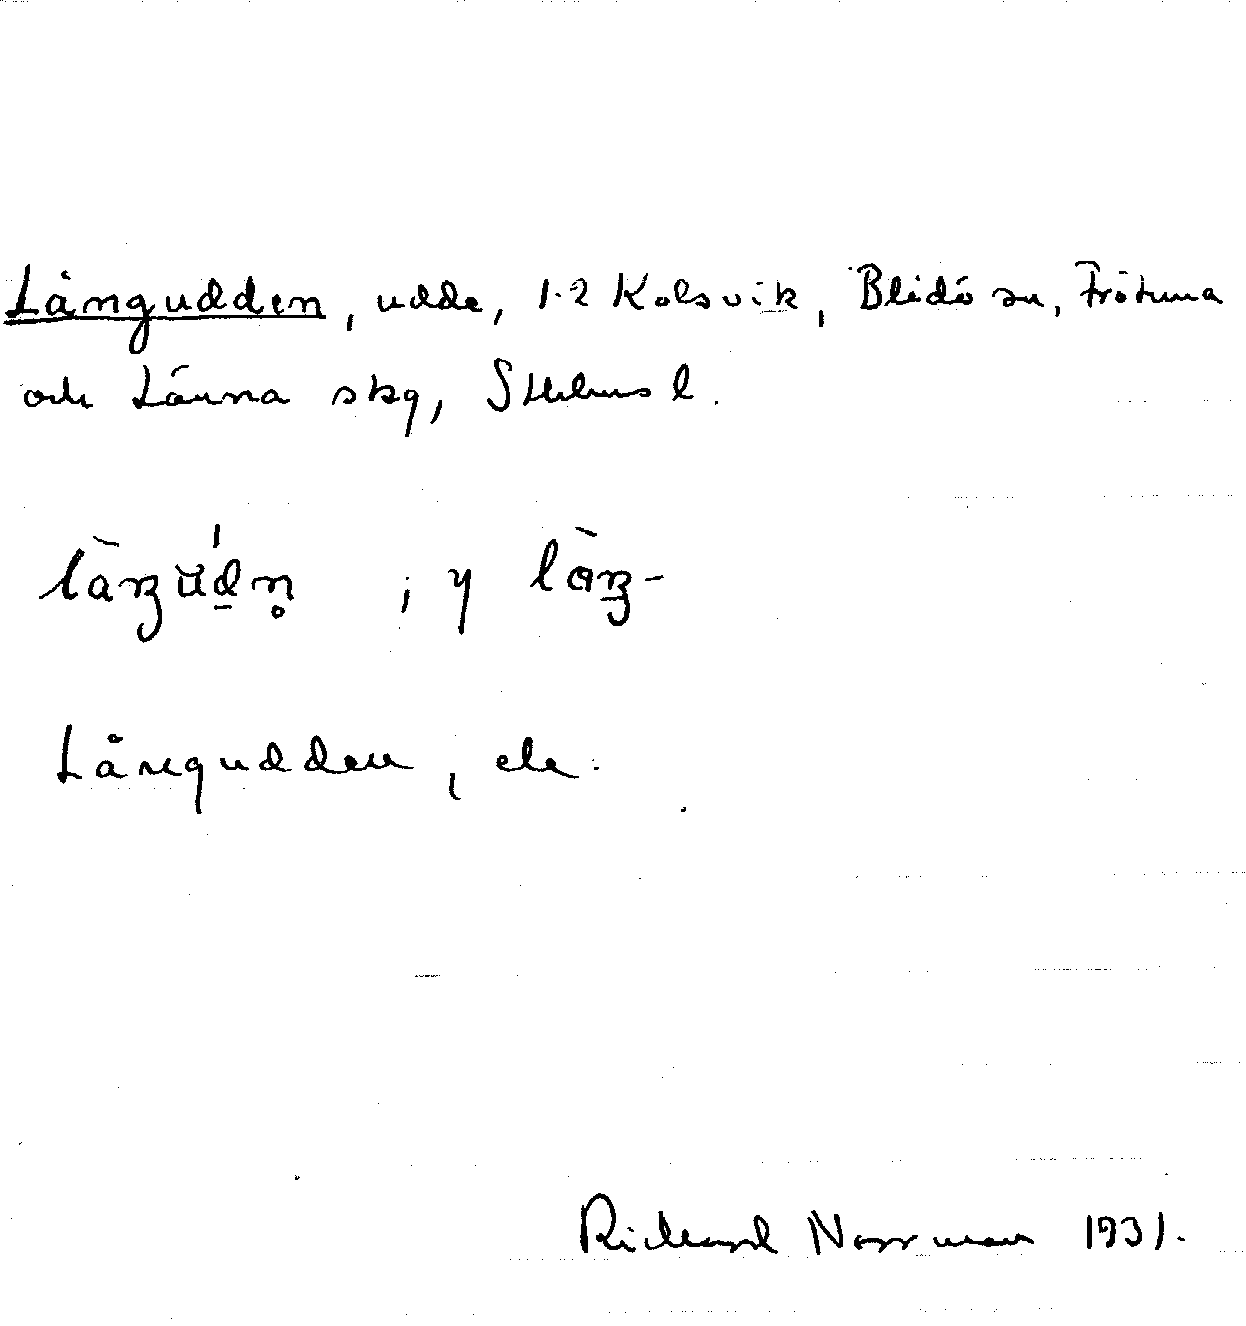 Långudden, udde, 1.2 Kolsvik, Blidö sn, Frötuna
och Länna skg, Sthlms l.
; y
Långudden, ek.
Richard Norrman 1931.